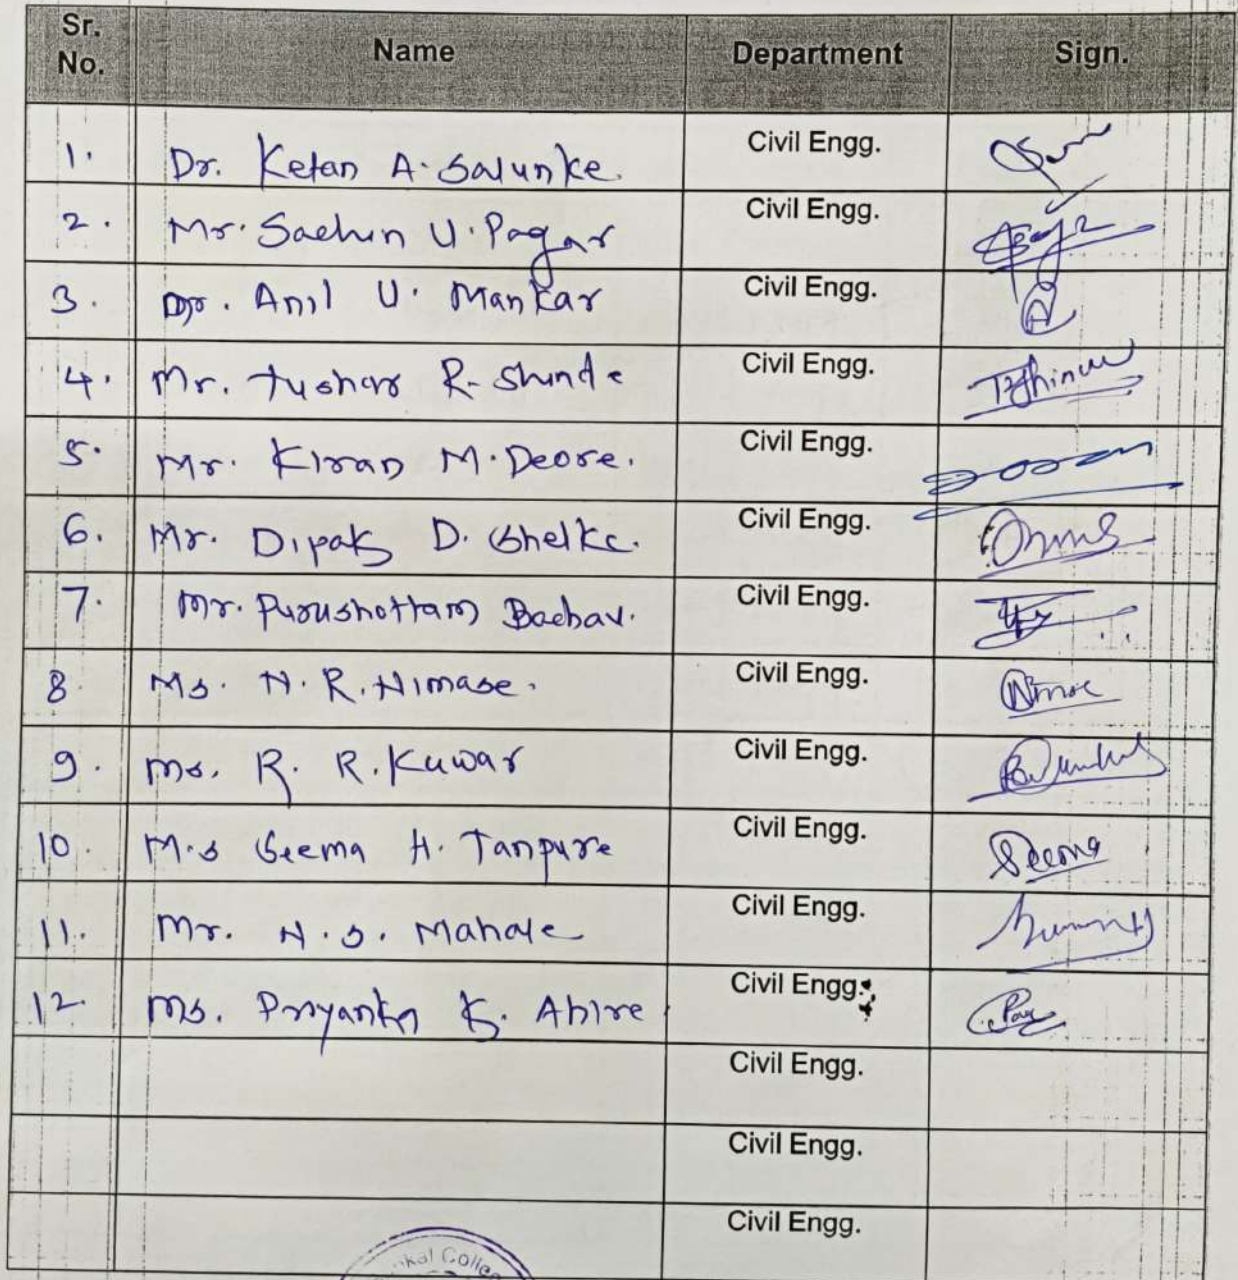 Sr. No. Name Department Sign.
1. Dr. Ketan A. Salunke. Civil Engg.
2. Mr. Sachin U. Pagar Civil Engg.
3. Dr. Anil U. Mankar Civil Engg.
4. Mr. Tushar R. Shinde Civil Engg.
5. Mr. Kiran M. Deore. Civil Engg.
6. Mr. Dipak D. Shelke. Civil Engg.
7. Mr. Purushottam Bachav. Civil Engg.
8 Ms. N. R. Nimase. Civil Engg.
9. Ms. R. R. Kuwar Civil Engg.
10. M.s Seema H. Tanpure Civil Engg. Seema
11. Mr. N. S. Mahale Civil Engg.
12. Ms. Priyanka K. Ahire Civil Engg.
Civil Engg.
Civil Engg.
Civil Engg.